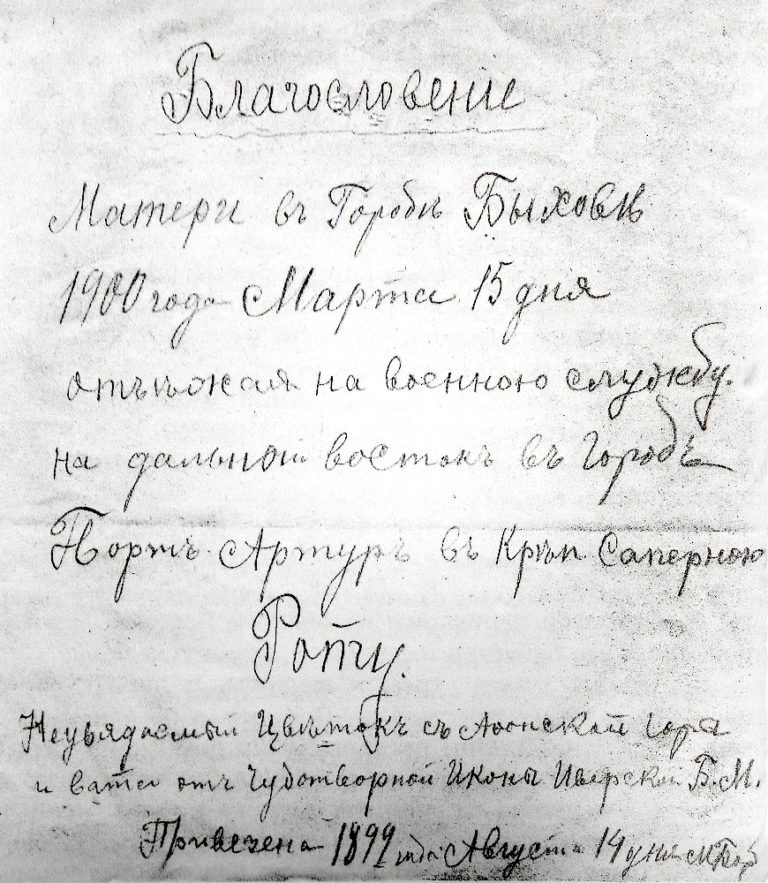 Благословение
Матери въ Городѣ Быховѣ
1900 года Марта 15 дня
отъѣжая на военною службу.
на дальной востокъ въ городъ
Портъ Артуръ въ Крѣп Саперною
Роту.
Неувядаемый Цвѣтокъ съ Аѳонской горы
и вата отъ Чудотворной Иконы Иверской Б.М.
Привезена 1899 года Августа 14 дня